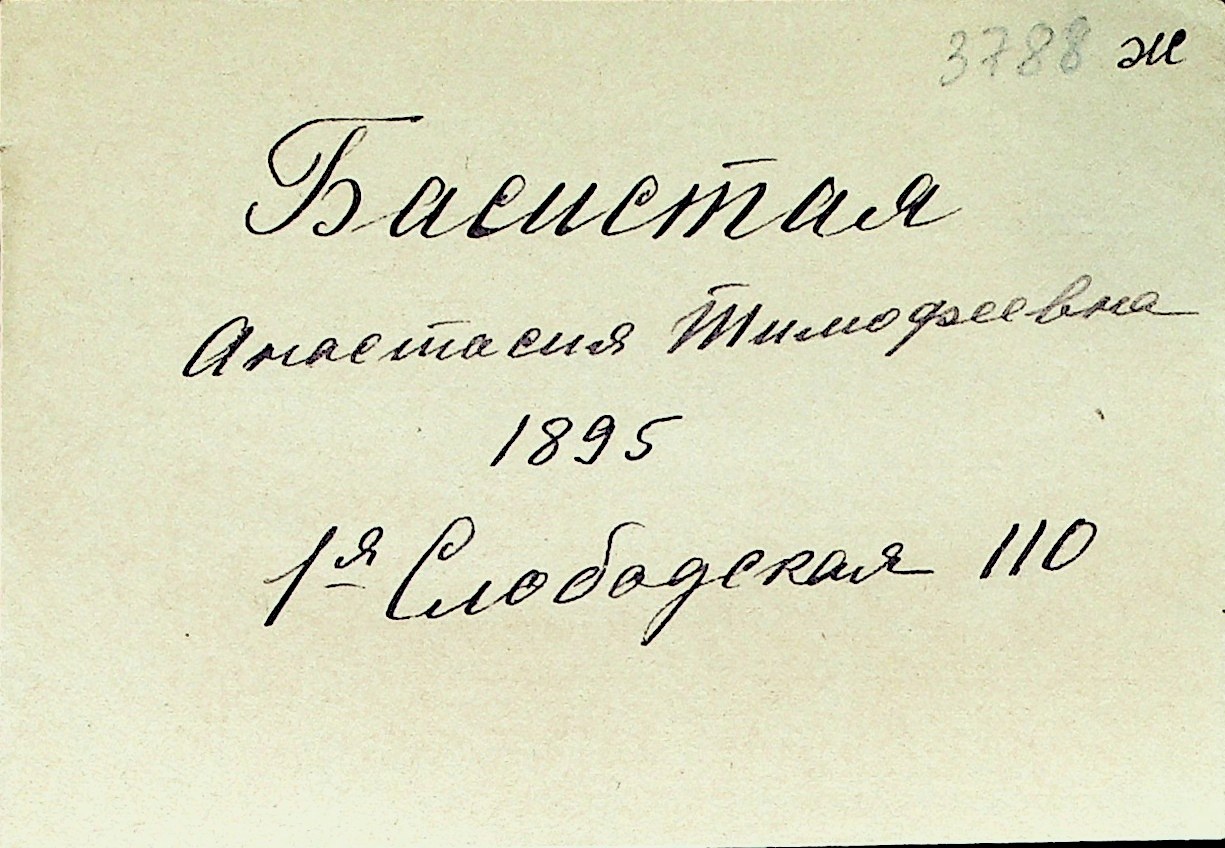 3788 ж
Басистая
Анастасия Тимофеевна
1895
1я Слободская 110